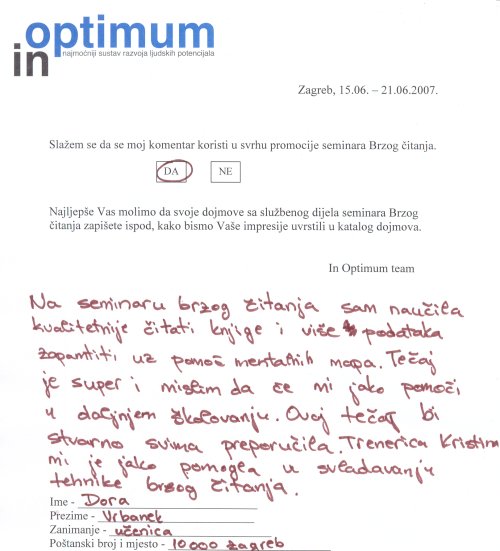 optimum
in
najmoćniji sustav razvoja ljudskih potencijala
Zagreb, 15.06. – 21.06.2007.
Slažem se da se moj komentar koristi u svrhu promocije seminara Brzog čitanja.
DA NE
Najljepše Vas molimo da svoje dojmove sa službenog dijela seminara Brzog
čitanja zapišete ispod, kako bismo Vaše impresije uvrstili u katalog dojmova.
In Optimum team
Na seminaru brzog čitanja sam naučila
kvalitetnije čitati knjige i više podataka
zapamtiti uz pomoć mentalnih mapa. Tečaj
je super i mislim da će mi jako pomoći
u daljnjem školovanju. Ovaj tečaj bi
stvarno svima preporučila. Trenerica Kristina
mi je jako pomogla u svladavanju
tehnike brzog čitanja.
Ime - Dora
Prezime - Vrbanek
Zanimanje - učenica
Poštanski broj i mjesto - 10 000 zagreb